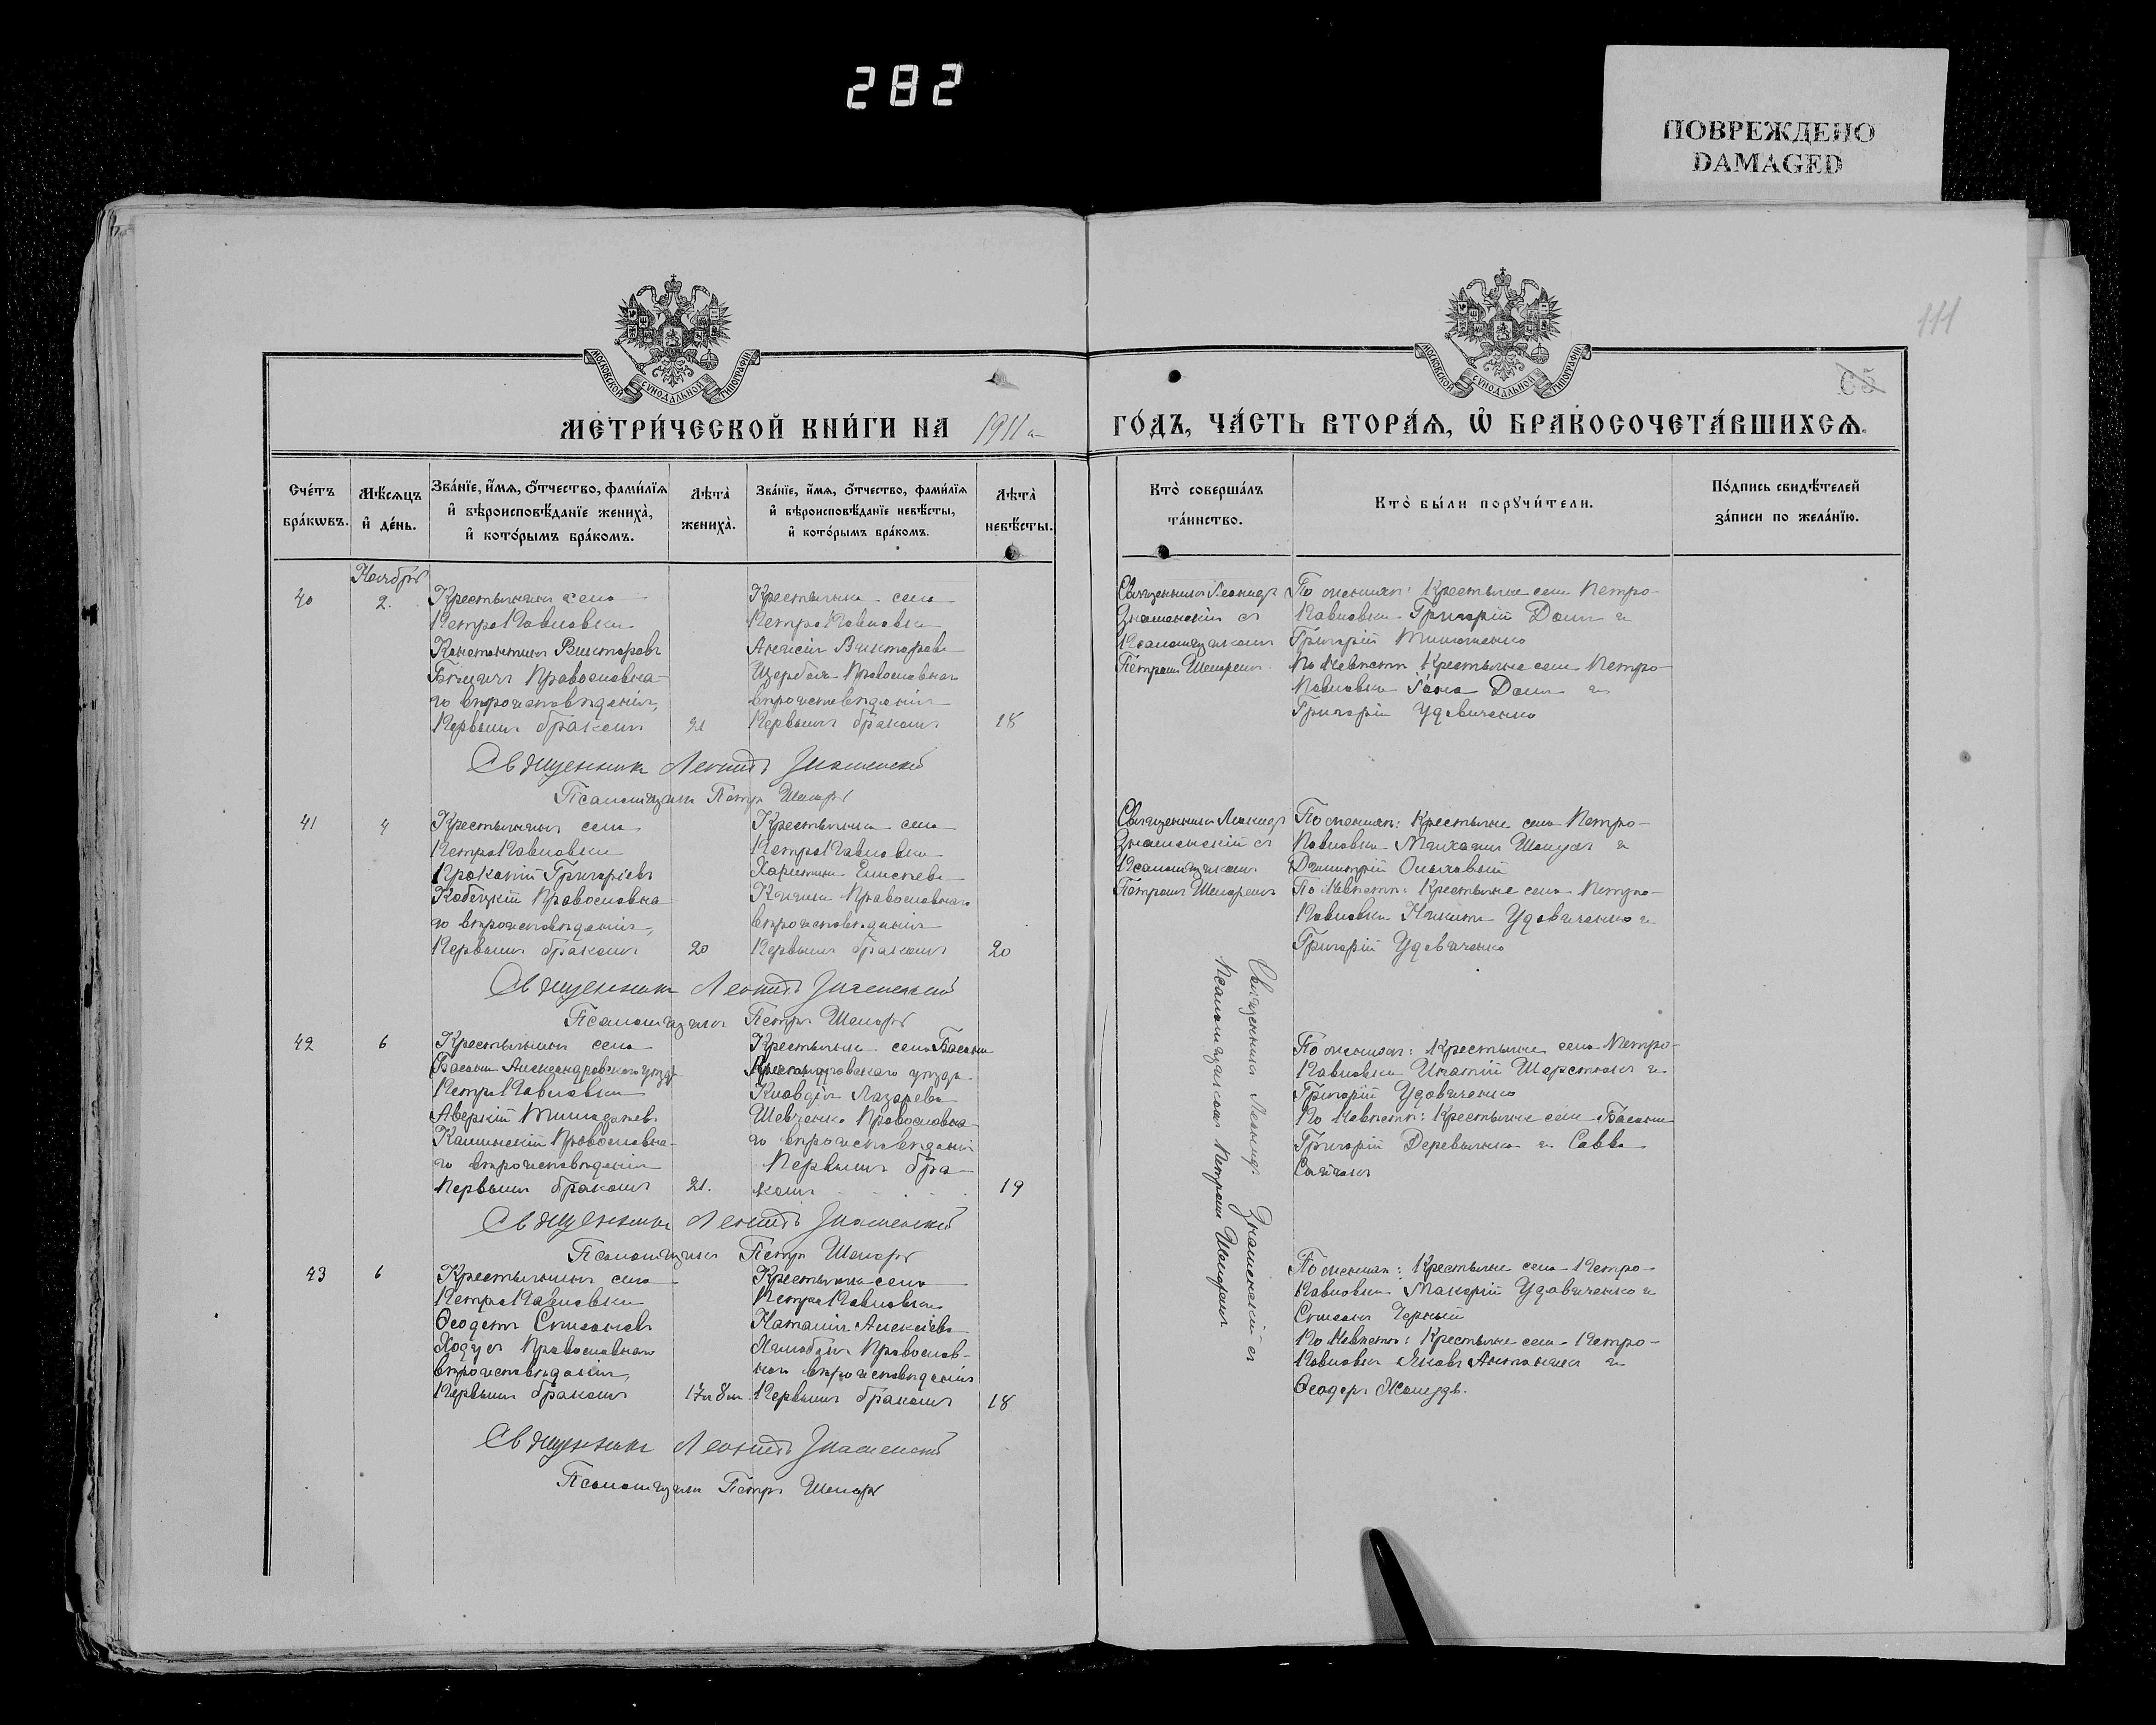 282
ПОВРЕЖДЕНО
DAMAGED
111
МОСКОВСКОЙ СУНОДАЛЬНОЙ ТИПОГРАФІИ
МОСКОВСКОЙ СУНОДАЛЬНОЙ ТИПОГРАФІИ
65
МЕТРИ́ЧЕСКОЙ КНИ́ГИ НА 1911 г.
ГО́ДЪ, ЧА́СТЬ ВТОРА́Ѧ, Ѡ҆ БРАКОСОЧЕТА́ВШИХСѦ.
Сче́тъ бра́кѡвъ.
Мѣ́сѧцъ и҆ де́нь.
Зва́нїе, и҆́мѧ, ѻ҆́тчество, фами́лїѧ и҆ вѣроисповѣ́данїе жениха̀, и҆ кото́рымъ бра́комъ.
Лѣта̀ жениха̀.
Зва́нїе, и҆́мѧ, ѻ҆́тчество, фами́лїѧ и҆ вѣроисповѣ́данїе невѣ́сты, и҆ кото́рымъ бра́комъ.
Лѣта̀ невѣ́сты.
Кто̀ соверша́лъ та́инство.
Кто̀ бы́ли порꙋчи́тели.
По́дпись свидѣ́телей за́писи по жела́нїю.
Ноябрь
40
2.
Крестьянинъ села
Петро Павловки
Константинъ Викторовъ
Православна-
го вѣроисповѣданія,
Первымъ бракомъ
21
Крестьянка села
Петро Павловки
Викторова
Щербакъ Православнаго
вѣроисповѣданія
Первымъ бракомъ
18
Священникъ Леонидъ
Знаменскій съ
Псаломщикомъ
Петромъ
По женихѣ: Крестьяне села Петро-
Павловки Григорій и
Григорій Тимошенко
По невѣстѣ Крестьяне села Петро-
Павловки и
Григорій Удовиченко
Священникъ Леонидъ Знаменскій
Псаломщикъ Петръ
41
4
Крестьянинъ села
Петро Павловки
Прокопій Григоріевъ
Кобецкій Православна-
го вѣроисповѣданія,
Первымъ бракомъ
20
Крестьянка села
Петро Павловки
Харитина Елисѣева
Православнаго
вѣроисповѣданія
Первымъ бракомъ
20
Священникъ Леонидъ
Знаменскій съ
Псаломщикомъ
Петромъ
По женихѣ: Крестьяне села Петро-
Павловки Михаилъ и
Димитрій
По невѣстѣ: Крестьяне села Петро-
Павловки Никита Удовиченко и
Григорій Удовиченко
Священникъ Леонидъ Знаменскій
Псаломщикъ Петръ
42
6
Крестьянинъ села
Басань Александровскаго уѣзда
Петро Павловки
Аверкій
Калинскій Православна-
го вѣроисповѣданія
Первымъ бракомъ
21.
Крестьянка села Басани
Александровскаго уѣзда
Клавдія Лазарева
Шевченко Православна-
го вѣроисповѣданія
Первымъ бра-
комъ
19
Священникъ Леонидъ Знаменскій съ
Псаломщикомъ Петромъ
По женихѣ: Крестьяне села Петро-
Павловки Игнатій и
Григорій Удовиченко
По невѣстѣ: Крестьяне села Басани
Григорій Деревянко и Савва
Священникъ Леонидъ Знаменскій
Псаломщикъ Петръ
43
6
Крестьянинъ села
Петро Павловки
Ѳеодотъ Симеоновъ
Ходусъ Православнаго
вѣроисповѣданія,
Первымъ бракомъ
Крестьянка села
Петро Павловки
Наталія Алексѣева
Православ-
наго вѣроисповѣданія
Первымъ бракомъ
18
По женихѣ: Крестьяне села Петро-
Павловки Макарій Удовиченко и
Симеонъ Черный
По невѣстѣ: Крестьяне села Петро-
Павловки Яковъ и
Ѳеодоръ
Священникъ Леонидъ Знаменскій
Псаломщикъ Петръ